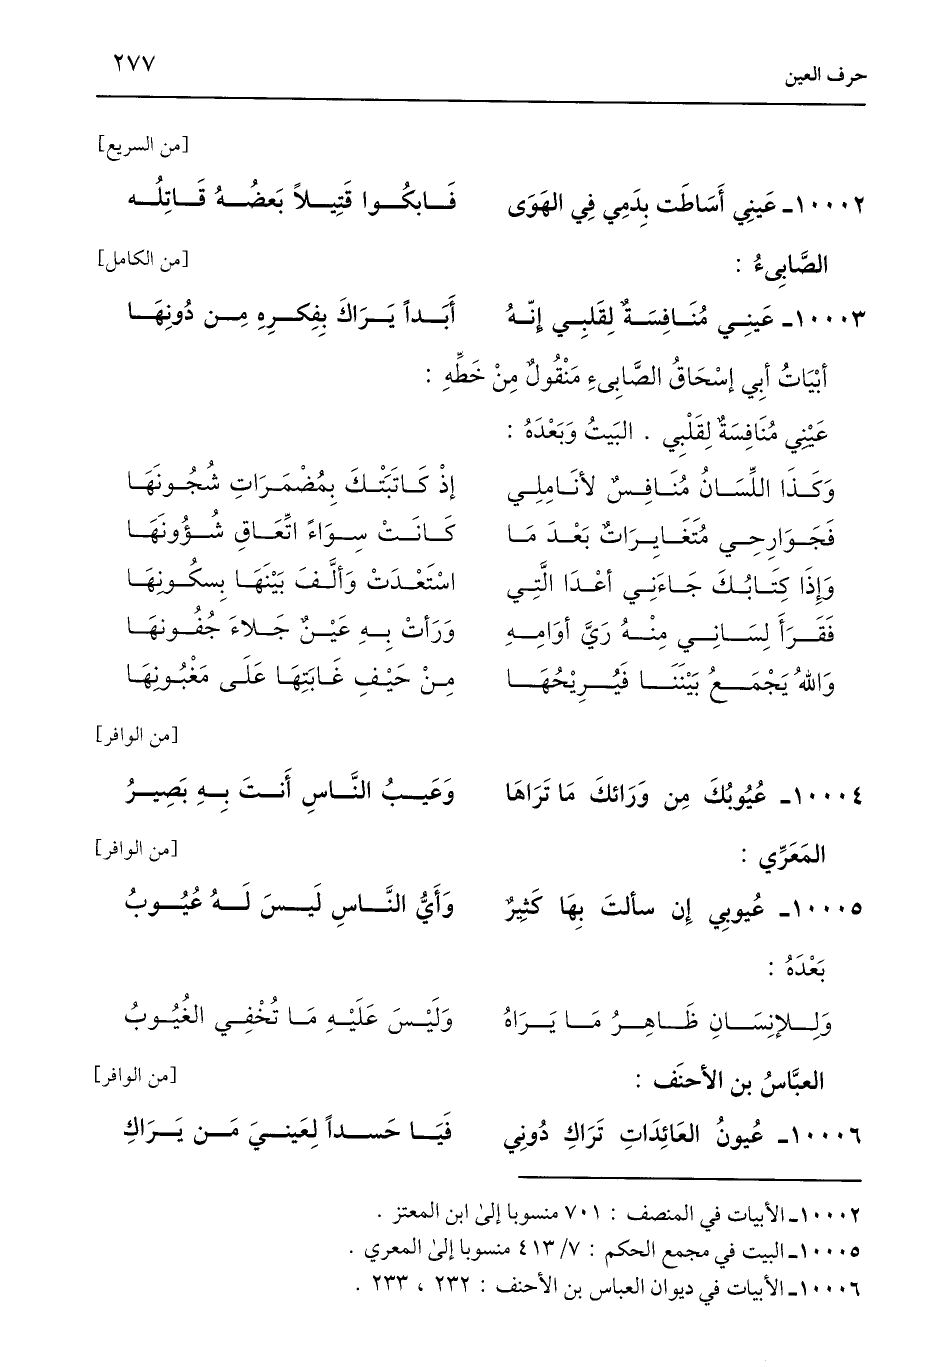 حرف العين ٢٧٧
[من السريع]
١٠٠٠٢ـ عَيني أَسَاطَت بِدَمِي فِي الهَوَى فَـابكُـوا قَتِيـلاً بَعضُـهُ قَـاتِلُـه
الصَّابِىءُ : [من الكامل]
١٠٠٠٣ـ عَينِـي مُنَـافِسَـةٌ لِقَلبِـي إِنّـهُ أَبَـداً يَـرَاكَ بِفِكـرِهِ مِـن دُونِهَـا
أبْيَاتُ أَبِي إسْحَاقُ الصَّابِىءِ مَنْقُولٌ مِنْ خَطِّهِ :
عَيْنِي مُنَافِسَةٌ لِقَلْبِي . البَيتُ وَبَعْدَهُ :
وَكَـذَا اللِّسَـانُ مُنَـافِـسٌ لأَنَـامِلِـي إذْ كَـاتَبَتْـكَ بِمُضْمَـرَاتِ شُجُـونِهَـا
فَجَـوَارِحِـي مُتَغَـايِـرَاتٌ بَعْـدَ مَـا كَـانَـتْ سِـوَاءً اتِّعَـاقِ شُـؤُونِهَـا
وَإِذَا كِتَـابُـكَ جَـاءَنِـي أعْـدَا الَّتِـي اسْتَعْـدَتْ وَأَلَّـفَ بَيْنَهَـا بِسكُـونِهَـا
فَقَـرَأَ لِسَـانِـي مِنْـهُ رَيَّ أُوَامِـهِ وَرَأَتْ بِـهِ عَيْـنٌ جَـلاءَ جُفُـونِهَـا
وَاللهُ يَجْمَـعُ بَيْنَنَـا فَيُـرِيْحُهَـا مِـنْ حَيْـفِ غَـابَتِهَـا عَلَـى مَغْبُـونِهَـا
[من الوافر]
١٠٠٠٤ـ عُيُوبُكَ مِن وَرَائكَ مَا تَرَاهَا وَعَيـبُ النَّـاسِ أَنـتَ بِـهِ بَصِيـرُ
المَعَرِّي : [من الوافر]
١٠٠٠٥ـ عُيوبِي إِن سألتَ بِهَا كَثِيرٌ وَأَيُّ النَّـاسِ لَيـسَ لَـهُ عُيُـوبُ
بَعْدَهُ :
وَلِـلإِنسَـانِ ظَـاهِـرُ مَـا يَـرَاهُ وَلَيْـسَ عَلَيْـهِ مَـا تُخْفِـي الغُيُـوبُ
العبَّاسُ بن الأحنَف : [من الوافر]
١٠٠٠٦ـ عُيونُ العَائِدَاتِ تَرَاكِ دُونِي فَيَـا حَسـداً لِعَينـيَ مَـن يَـرَاكِ
١٠٠٠٢ـ الأبيات في المنصف : ٧٠١ منسوبا إلىٰ ابن المعتز .
١٠٠٠٥ـ البيت في مجمع الحكم : ٧/ ٤١٣ منسوبا إلىٰ المعري .
١٠٠٠٦ـ الأبيات في ديوان العباس بن الأحنف : ٢٣٢ ، ٢٣٣ .